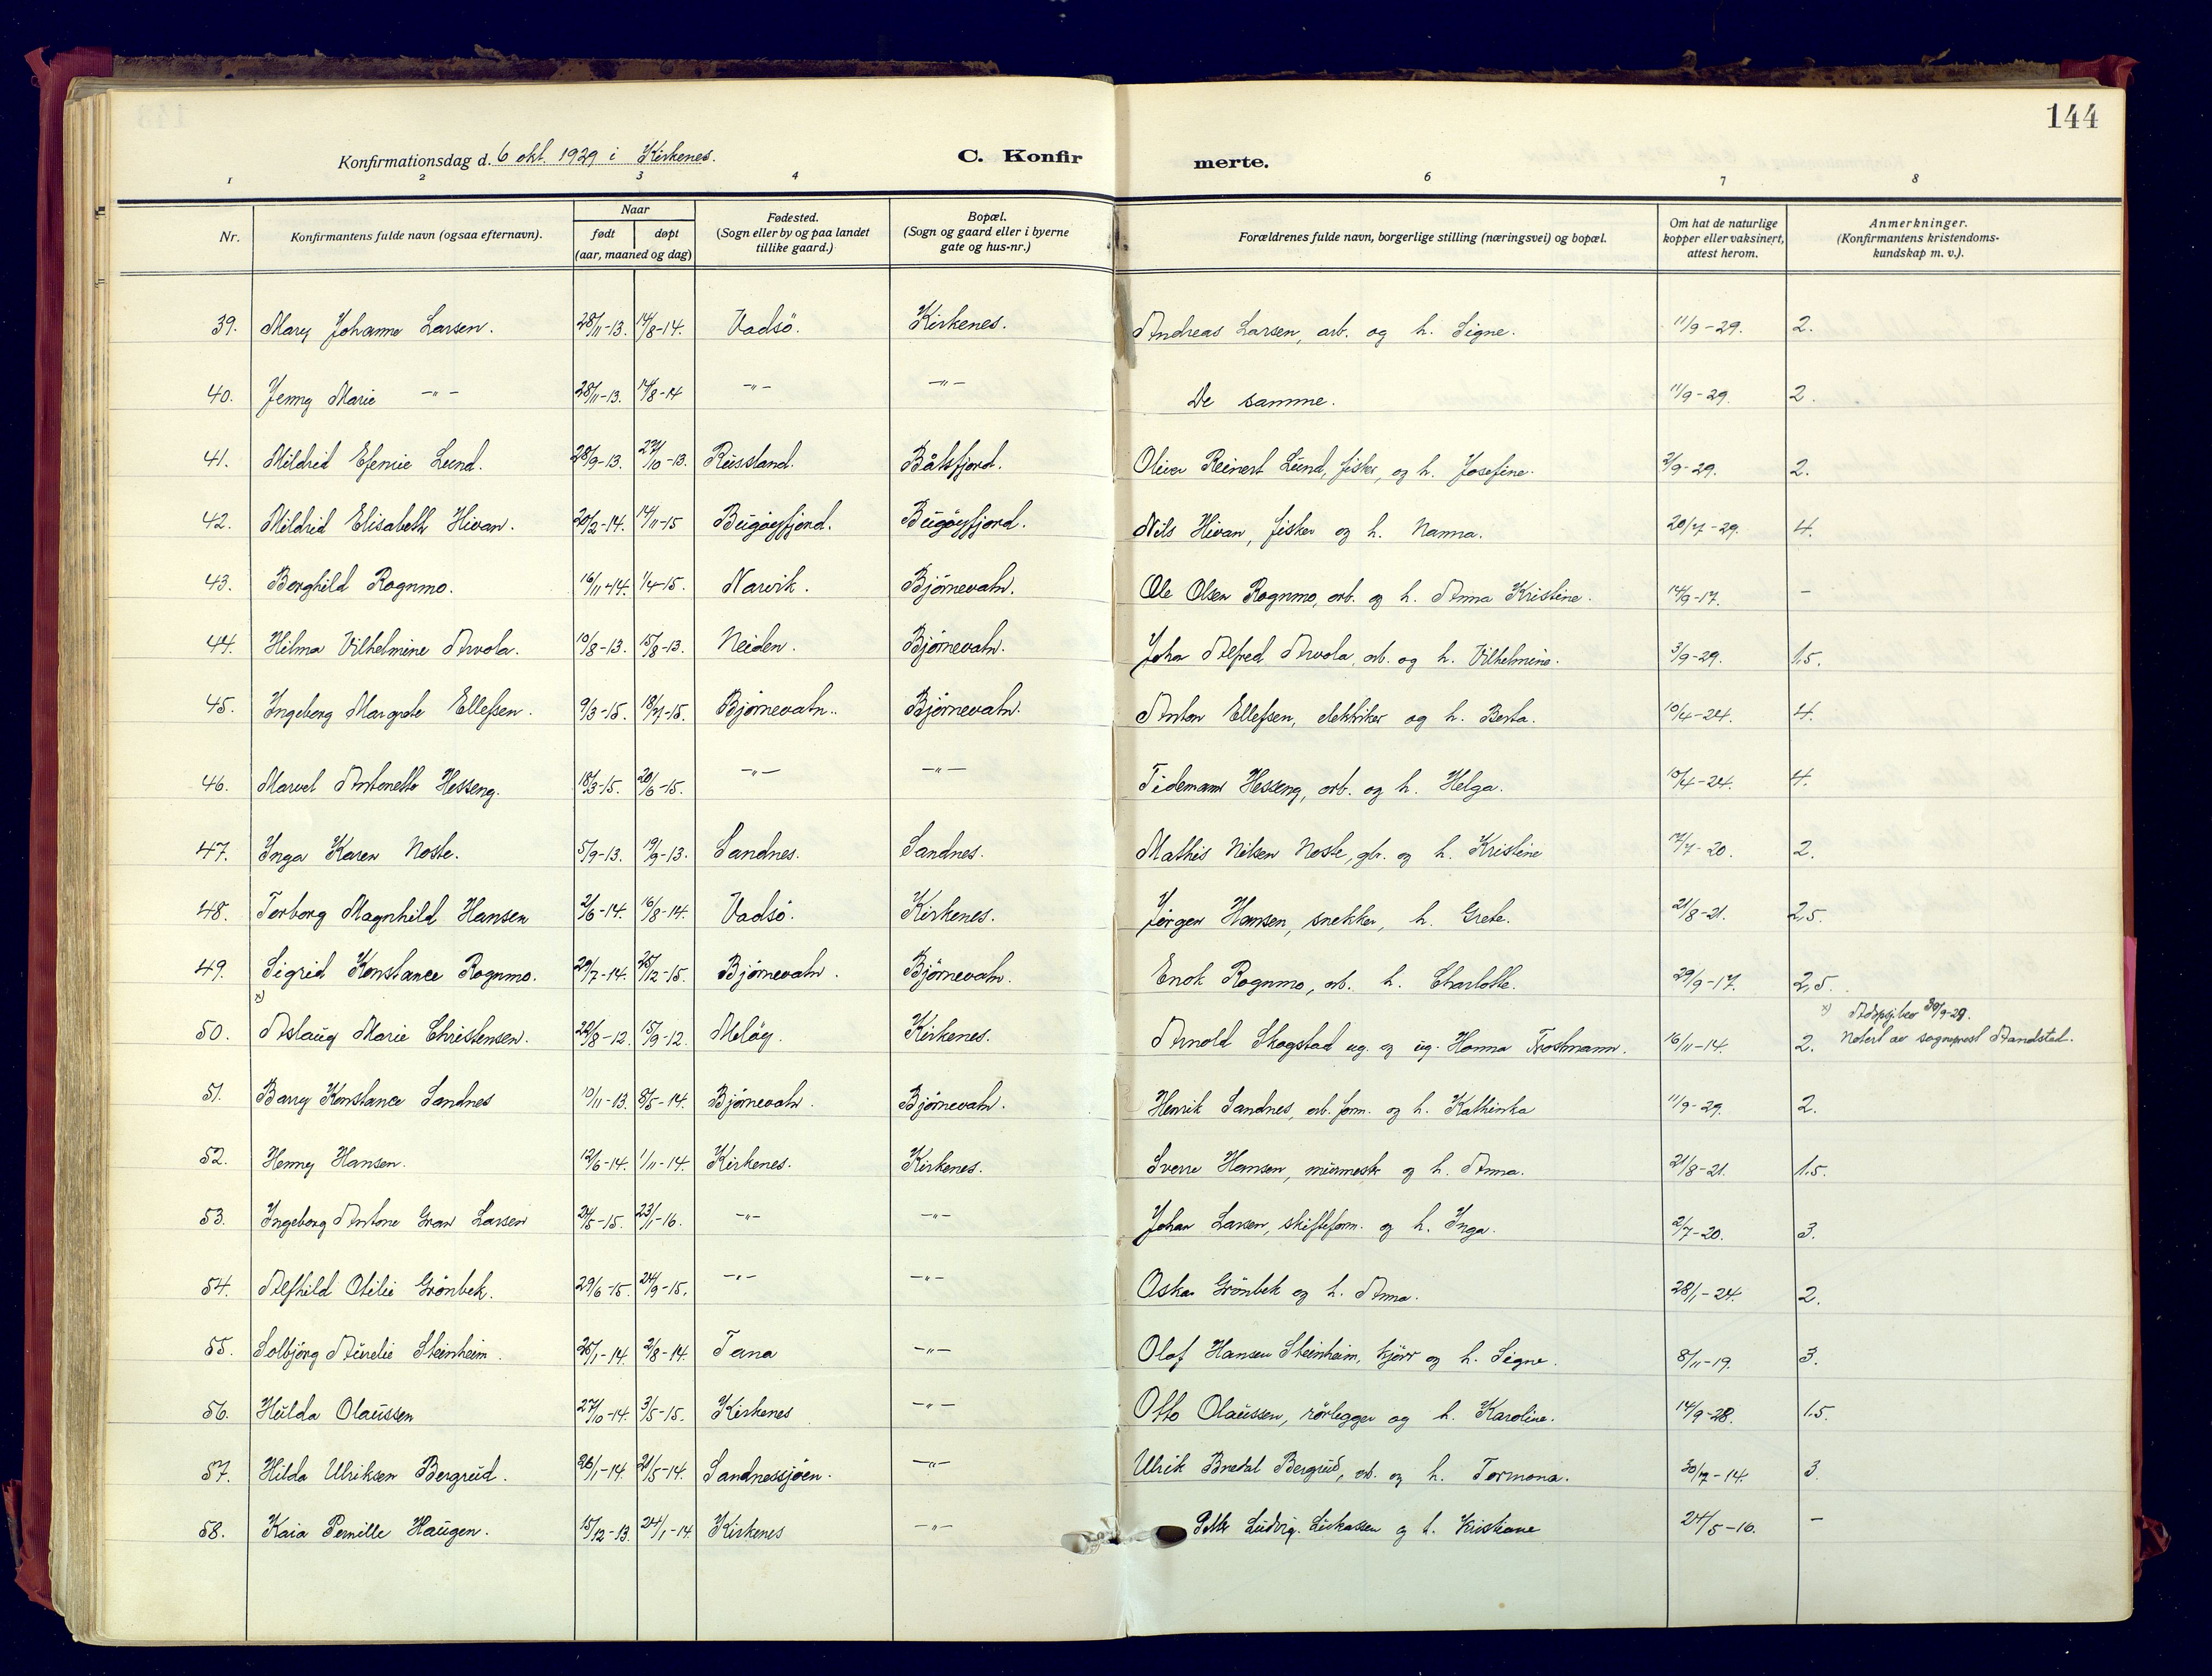 144
Konfirmationsdag d. 6 okt. 1929 i Kirkenes. C. Konfir merte.
1 2 3 4 6 7 8
Nr. Konfirmantens fulde navn (ogsaa efternavn). Naar født døpt (aar, maaned og dag) Fødested. (Sogn eller by og paa landet tillike gaard.) Bopæl. (Sogn og gaard eller i byerne gate og hus-nr.) Forældrenes fulde navn, borgerlige stilling (næringsvei) og bopæl. Om hat de naturlige kopper eller vaksinert, attest herom. Anmerkninger. (Konfirmantens kristendoms-kundskap m. v.).
39. Mary Johanne Larsen. 28/11-13. 14/8-14. Vadsö. Kirkenes. Andreas Larsen, arb. og h. Signe. 11/9-29. 2.
40. Jenny Marie -"- 28/11-13. 14/8-14 -"- -"- De samme. 11/9-29. 2.
41. Mildrid Efemie Lund. 28/9-13. 27/10-13. Russland. Båtsfjord. Oliver Reinert Lund, fisker, og h. Josefine. 2/9-29. 2.
42. Mildrid Elisabeth Hivan. 20/2-14. 14/11-15 Bugöyfjord. Bugöyfjord. Nils Hivan, fisker og h. Nanna. 20/7-29. 4.
43. Borghild Rognmo. 16/11-14. 1/4-15. Narvik. Bjørnevatn. Ole Olsen Rognmo, arb. og h. Anna Kristine. 14/9-17. -
44. Hilma Vilhelmine Arvola. 10/8-13. 15/8-13. Neiden. Bjørnevatn. Johan Alfred Arvola, arb. og h. Vilhelmine. 3/9-29. 1.5.
45. Ingeborg Margrete Ellefsen. 9/3-15. 18/7-15. Bjørnevatn. Bjørnevatn. Anton Ellefsen, elektriker og h. Berta. 10/4-24. 4.
46. Marvel Antonette Hesseng. 18/3-15. 20/6-15. -"- -"- Tidemann Hesseng, arb. og h. Helga. 10/4-24. 4.
47. Inga Karen Noste. 5/9-13. 19/9-13. Sandnes. Sandnes. Mathis Nilsen Noste, gbr. og h. Kristine 17/7-20. 2.
48. Torborg Magnhild Hansen 2/6-14. 16/8-14. Vadsö. Kirkenes. Jørgen Hansen, snekker, h. Grete. 21/8-21. 2,5.
49. Sigrid Konstance Rognmo. 29/7-14. 26/12-15. Bjørnevatn. Bjørnevatn. Enok Rognmo, arb. h. Charlotte. 29/9-17. 2,5.
x) x) 30/9-29.
50. Aslaug Marie Christensen. 22/8-12. 15/9-12. Meløy. Kirkenes. Arnold Skogstad ug. og ug. Hanna Trostmann. 16/11-14. 2. Notert av sogneprest Aandstad.
51. Barry Konstance Sandnes 10/11-13. 8/5-14. Bjørnevatn. Bjørnevatn. Henrik Sandnes, arb. form. og h. Kathinka 11/9-29. 2.
52. Henny Hansen. 12/6-14. 1/11-14. Kirkenes. Kirkenes. Sverre Hansen, murmestr og h. Anna. 21/8-21. 1.5.
53. Ingeborg Antone Gran Larsen 24/5-15. 23/1-16. -"- -"- Johan Larsen, skifteform. og h. Inga. 2/7-20. 3.
54. Alfhild Otilie Grönbek. 29/6-15. 24/9-15. -"- -"- Oskar Grönbek og h. Anna. 28/1-24. 2.
55. Solbjørg Aurelie Steinheim. 26/1-14. 2/8-14. Tana -"- Olaf Hansen Steinheim, kjörr og h. Signe. 8/11-19. 3.
56. Hulda Olaussen 27/10-14. 3/5-15. Kirkenes -"- Otto Olaussen, rörlegger og h. Karoline. 14/9-28. 1.5.
57. Hilda Ulriksen Bergrud. 26/1-14. 21/5-14. Sandnessjøen. -"- Ulrik Bredal Bergrud, arb. og h. Tormona. 30/12-14. 3
58. Kaia Pernille Haugen. 15/12-13. 24/1-14. Kirkenes -"- Petter Ludvig og h. Kristiane 24/5-16. -